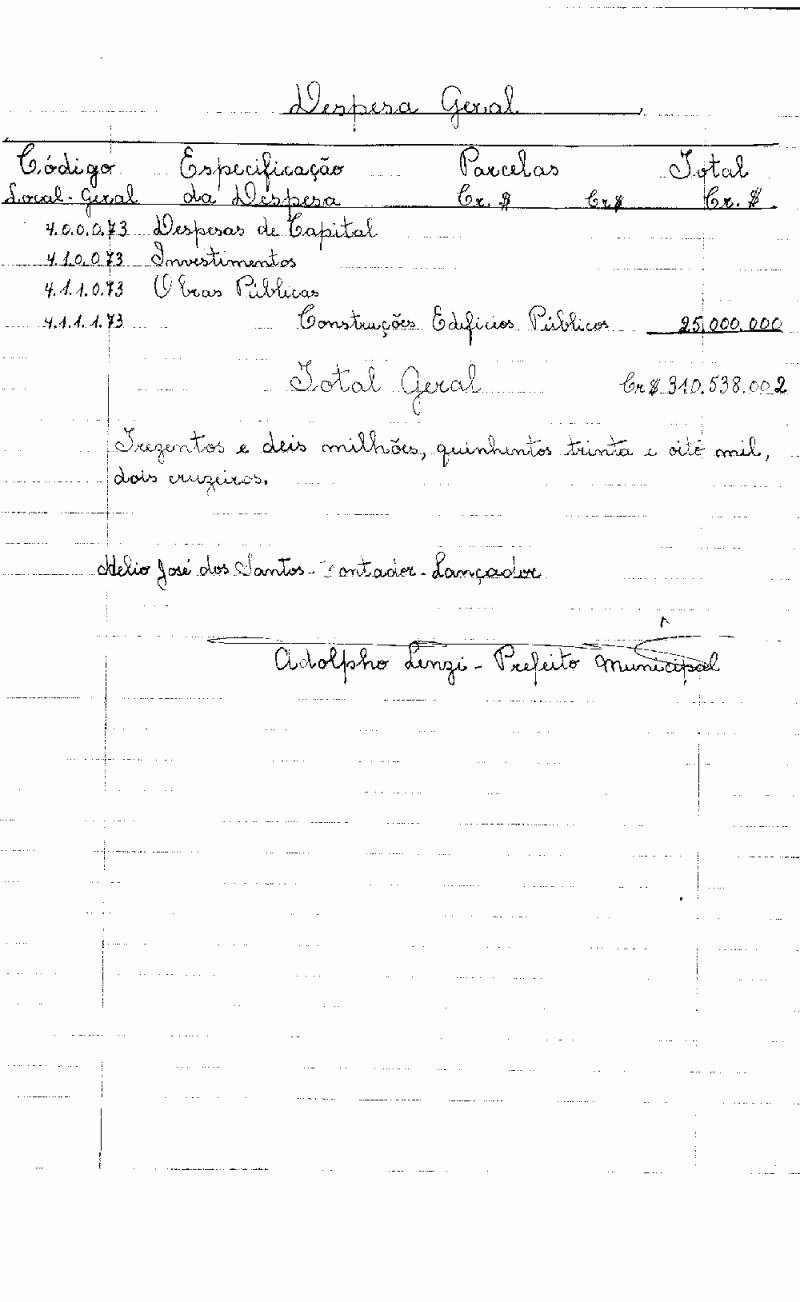 Despesa Geral
Código Especificação Parcelas Total
Local-Geral da Despesa Cr.$ Cr$ Cr.$
4.0.0.0.73 Despesas de Capital
4.1.0.0.73 Investimentos
4.1.1.0.73 Obras Públicas
4.1.1.1.73 Construções Edifícios Públicos 25.000.000
Total Geral Cr$ 310.538.002
Trezentos e deis milhões, quinhintos trinta e oito mil,
dois cruzeiros.
Helio José dos Santos - Contador - Lançador
Adolpho Linzi - Prefeito Municipal